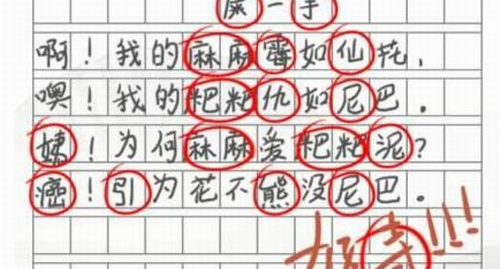 屎一手
啊！我的麻麻霉如仙花，
噢！我的粑粑仇如尼巴。
姨！为何麻麻爱粑粑泥？
癌！引为花不熊没尼巴。
好诗!!!